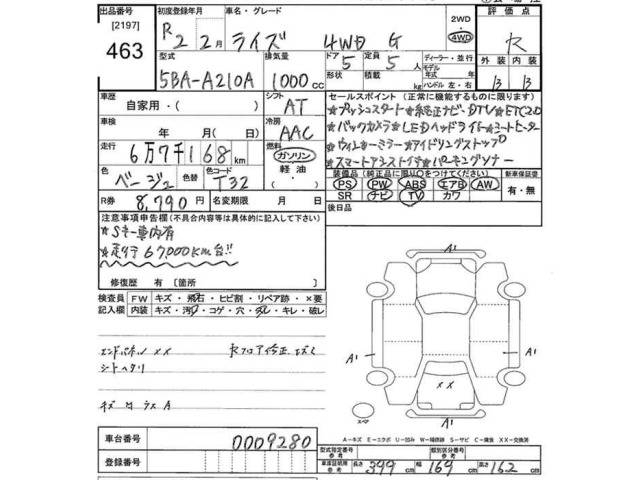 出品番号 初度登録年月 車名・グレード 2WD 評価点
[2197] R2 2月 ライズ 4WD G 4WD
463
型式 排気量 ドア 定員 ディーラー・並行 外装 内装
5BA-A210A 1000cc 5 5人 モデル年式 年 B B
形状 積載 kg ハンドル 左・右
車歴 自家用・( ) シフト AT セールスポイント(正常に機能するものに限ります)
★プッシュスタート★純正ナビ・DTV★ETC2.0
車検 年 月( 日) 冷房 AAC ★バックカメラ★LEDヘッドライト★シートヒーター
走行 6万7千168km 燃料 ガソリン 軽油 ★ウィンカーミラー★アイドリングストップ
★スマートアシスト★パーキングソナー
色 ベージュ 色替 色コード T32 装備品(純正品に限り○をつけてください) 新車保証書
PS PW ABS エアB AW 有・無
SR ナビ TV カワ
R券 8,790円 名変期限 月 日 後日品
注意事項申告欄(不具合内容等は具体的に記入して下さい)
★Sキー車内有
★走行67,000KM台!!
修復歴 有 [箇所 ]
検査員記入欄 FW キズ・飛石・ヒビ割・リペア跡・×要
内装 キズ・汚れ・コゲ・穴・スレ・キレ・破レ
A1
A1 A1
××
A1
エンドパネル ××
シートヘタリ
スペア
A-キズ E-エクボ U-凹み W-補修跡 S-サビ C-腐食 XX-交換済
車台番号 0009280
登録番号
型式指定番号 参考 類別区分番号 参考
車庫証明用 参考 長さ 399cm 幅 169cm 高さ 162cm